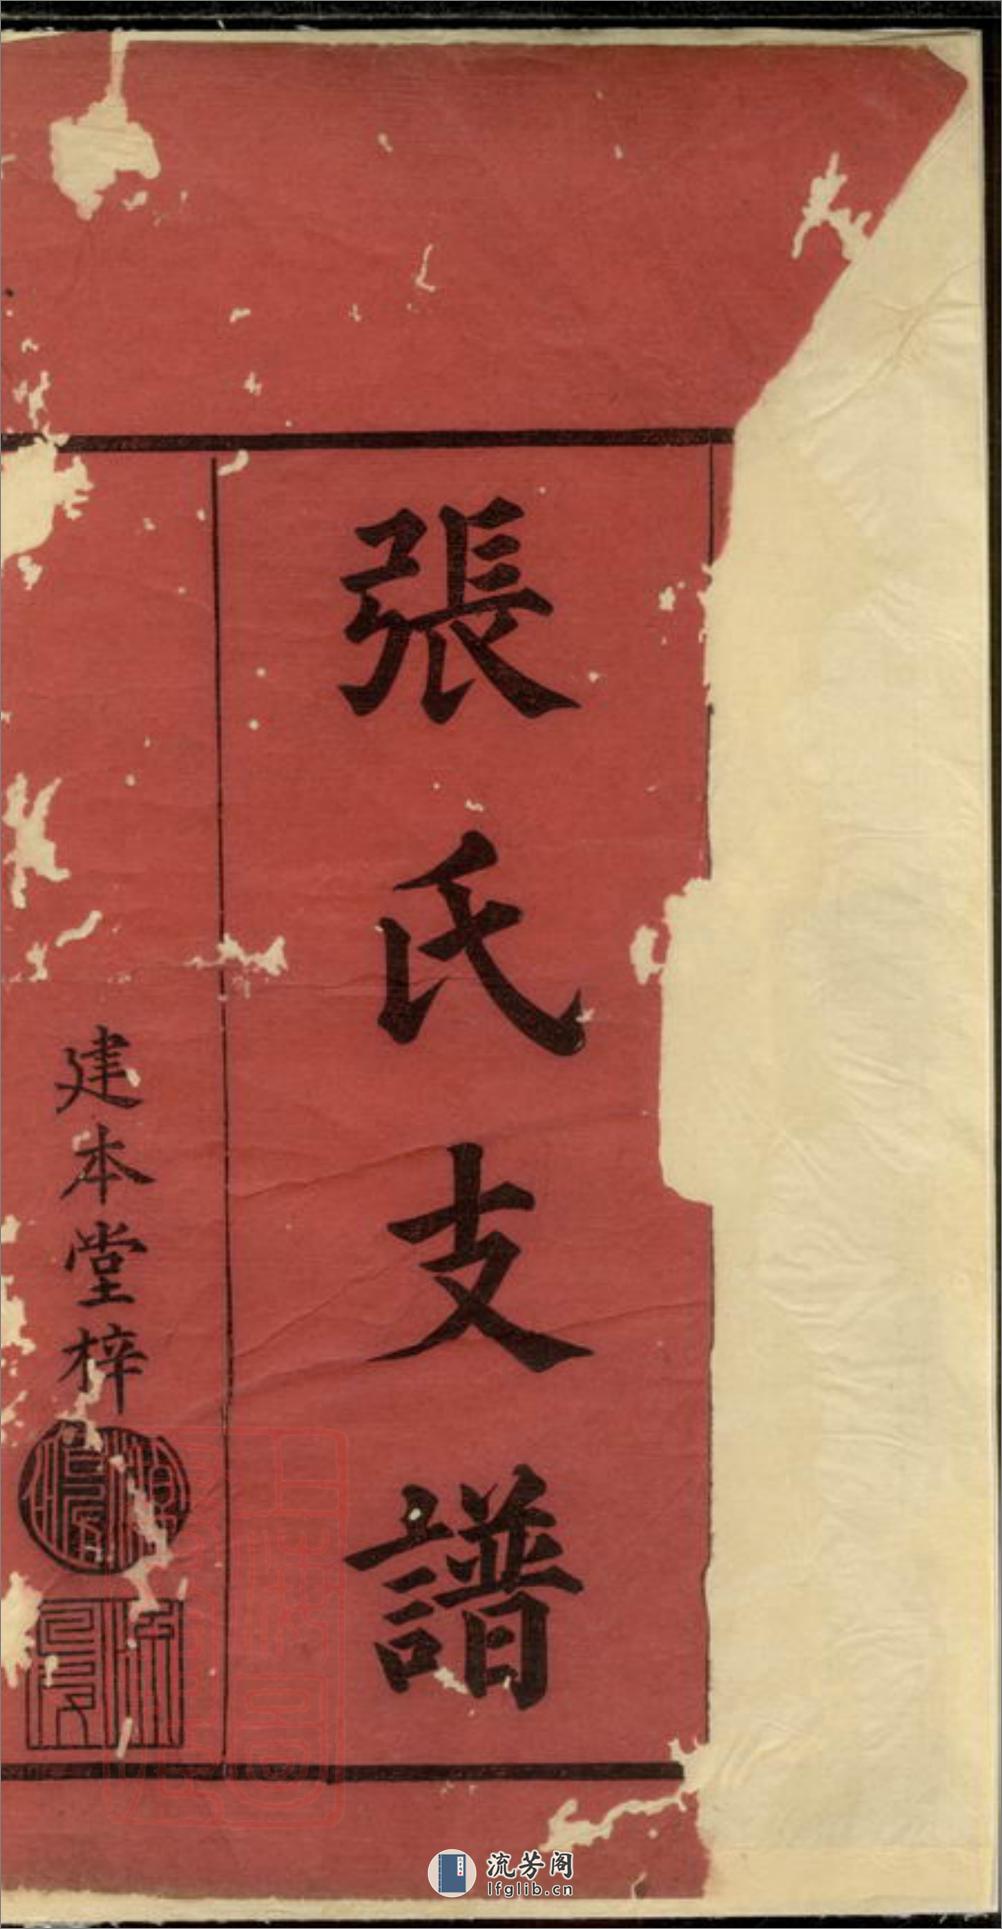 張氏支譜
建本堂梓
流芳阁
lfglib.cn